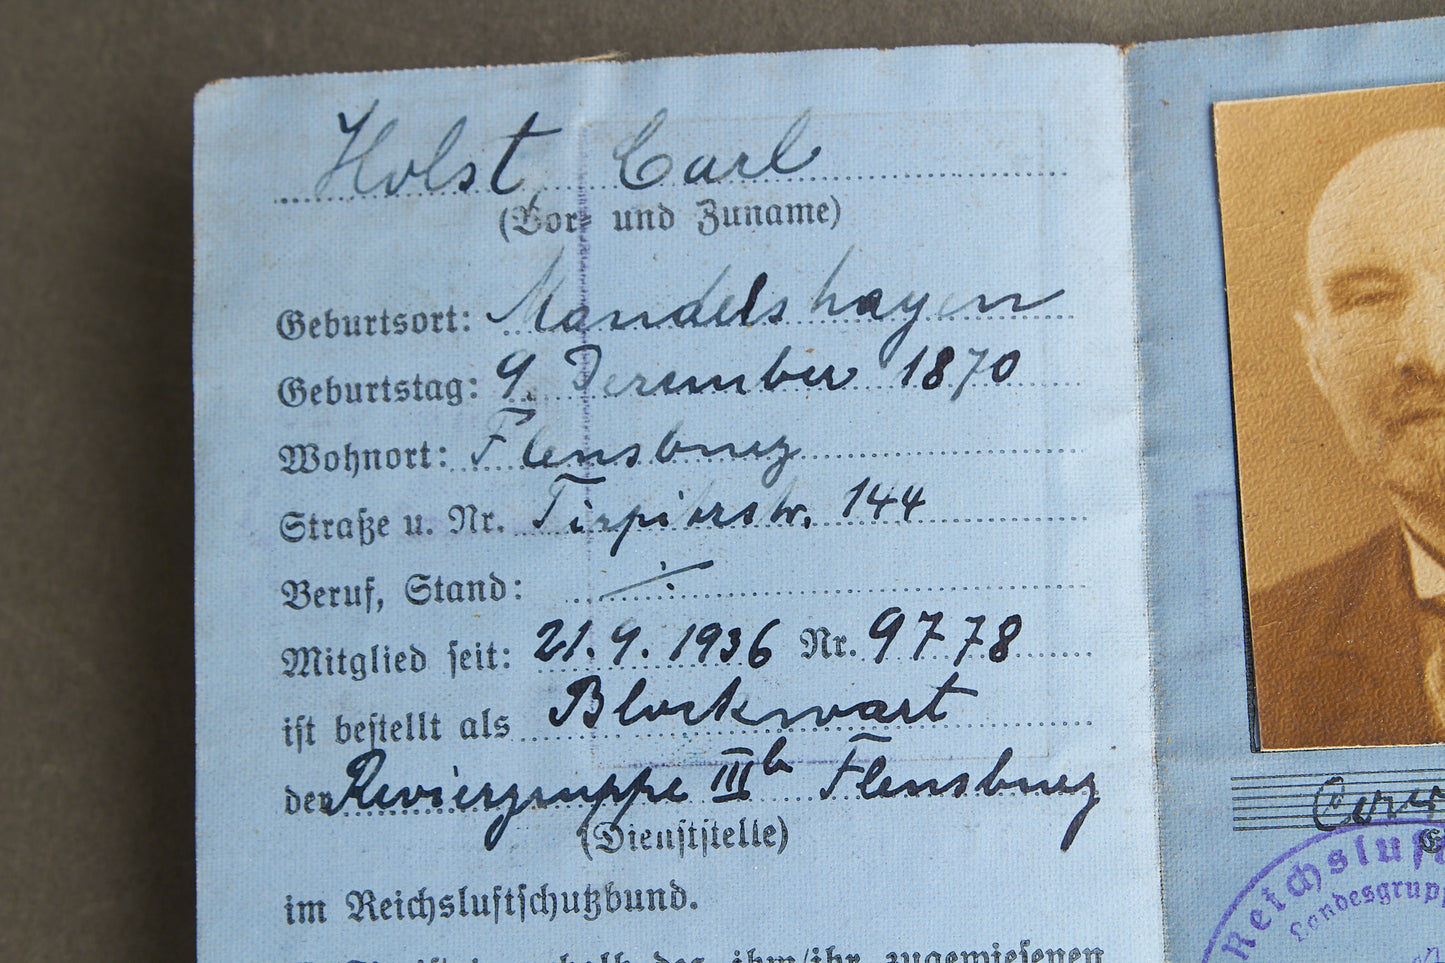 Holst Carl
(Vor- und Zuname)
Geburtsort: Mandelshagen
Geburtstag: 9. Dezember 1870
Wohnort: Flensburg
Straße u. Nr. Tirpitzstr. 144
Beruf, Stand:
Mitglied seit: 21.9.1936 Nr. 9778
ist bestellt als Blockwart
der Reviergruppe III b Flensburg
(Dienststelle)
im Reichsluftschutzbund.
des ihm/ihr zugewiesenen
Reichsluf
Landesgrupp